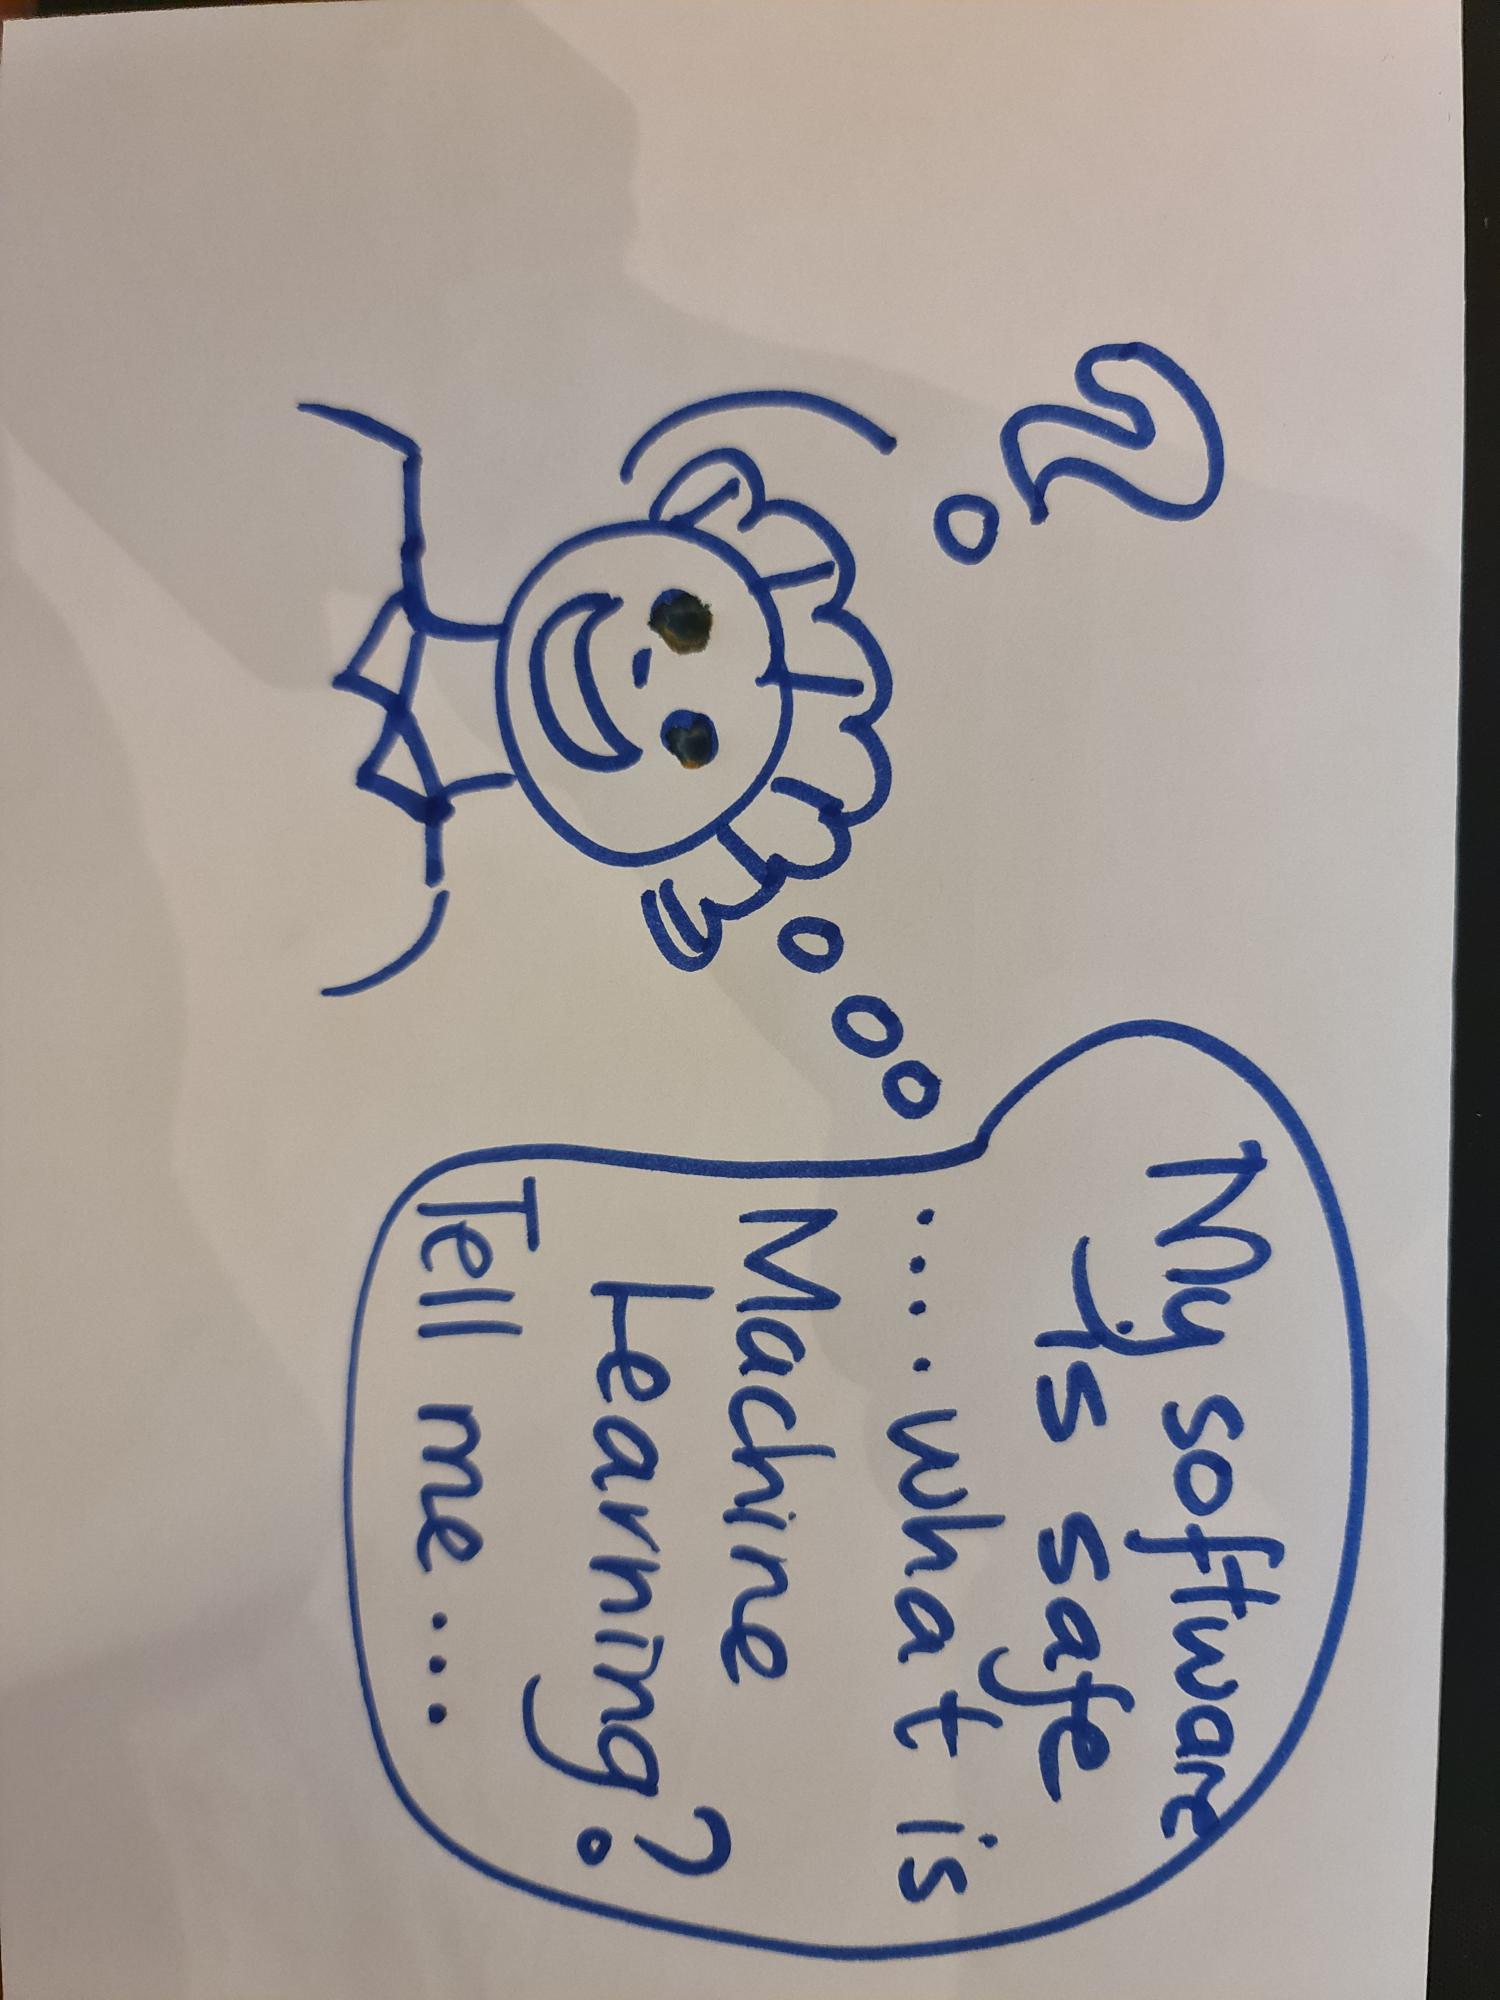 ?
My software
is safe
.... what is
Machine
Learning?
Tell me ....